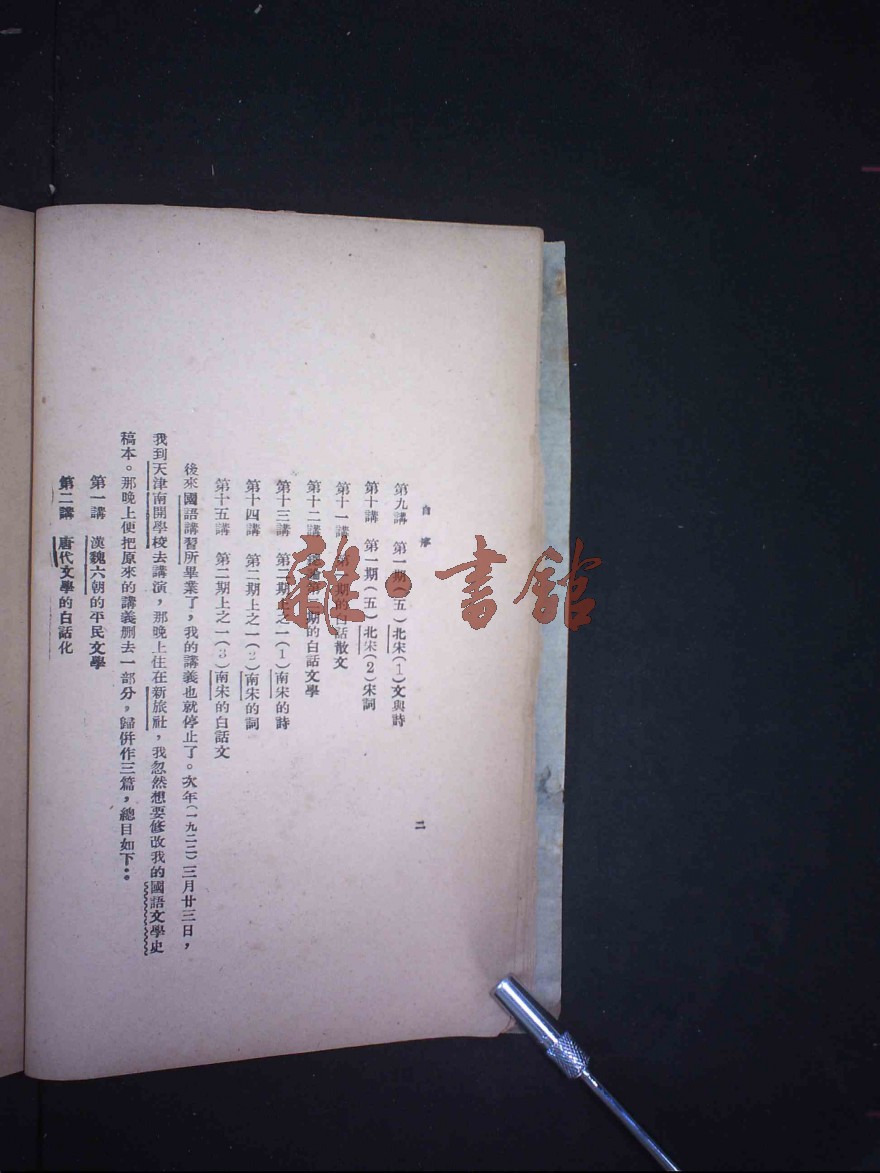 自序
二
第九講 第一期(五)北宋(1)文與詩
第十講 第一期(五)北宋(2)宋詞
第十一講 第一期的白話散文
第十二講 總論第二期的白話文學
第十三講 第二期上之一(1)南宋的詩
第十四講 第二期上之一(2)南宋的詞
第十五講 第二期上之一(3)南宋的白話文
後來國語講習所畢業了,我的講義也就停止了。次年(一九二二)三月廿三日,
我到天津南開學校去講演,那晚上住在新旅社,我忽然想要修改我的國語文學史
稿本。那晚上便把原來的講義刪去一部分,歸併作三篇,總目如下:
第一講 漢魏六朝的平民文學
第二講 唐代文學的白話化
雜·書館